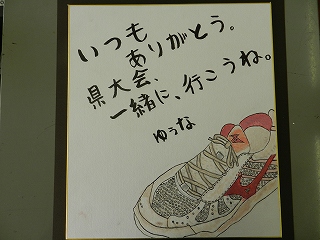 いつも
ありがとう。
県大会、
一緒に、行こうね。
ゆうな